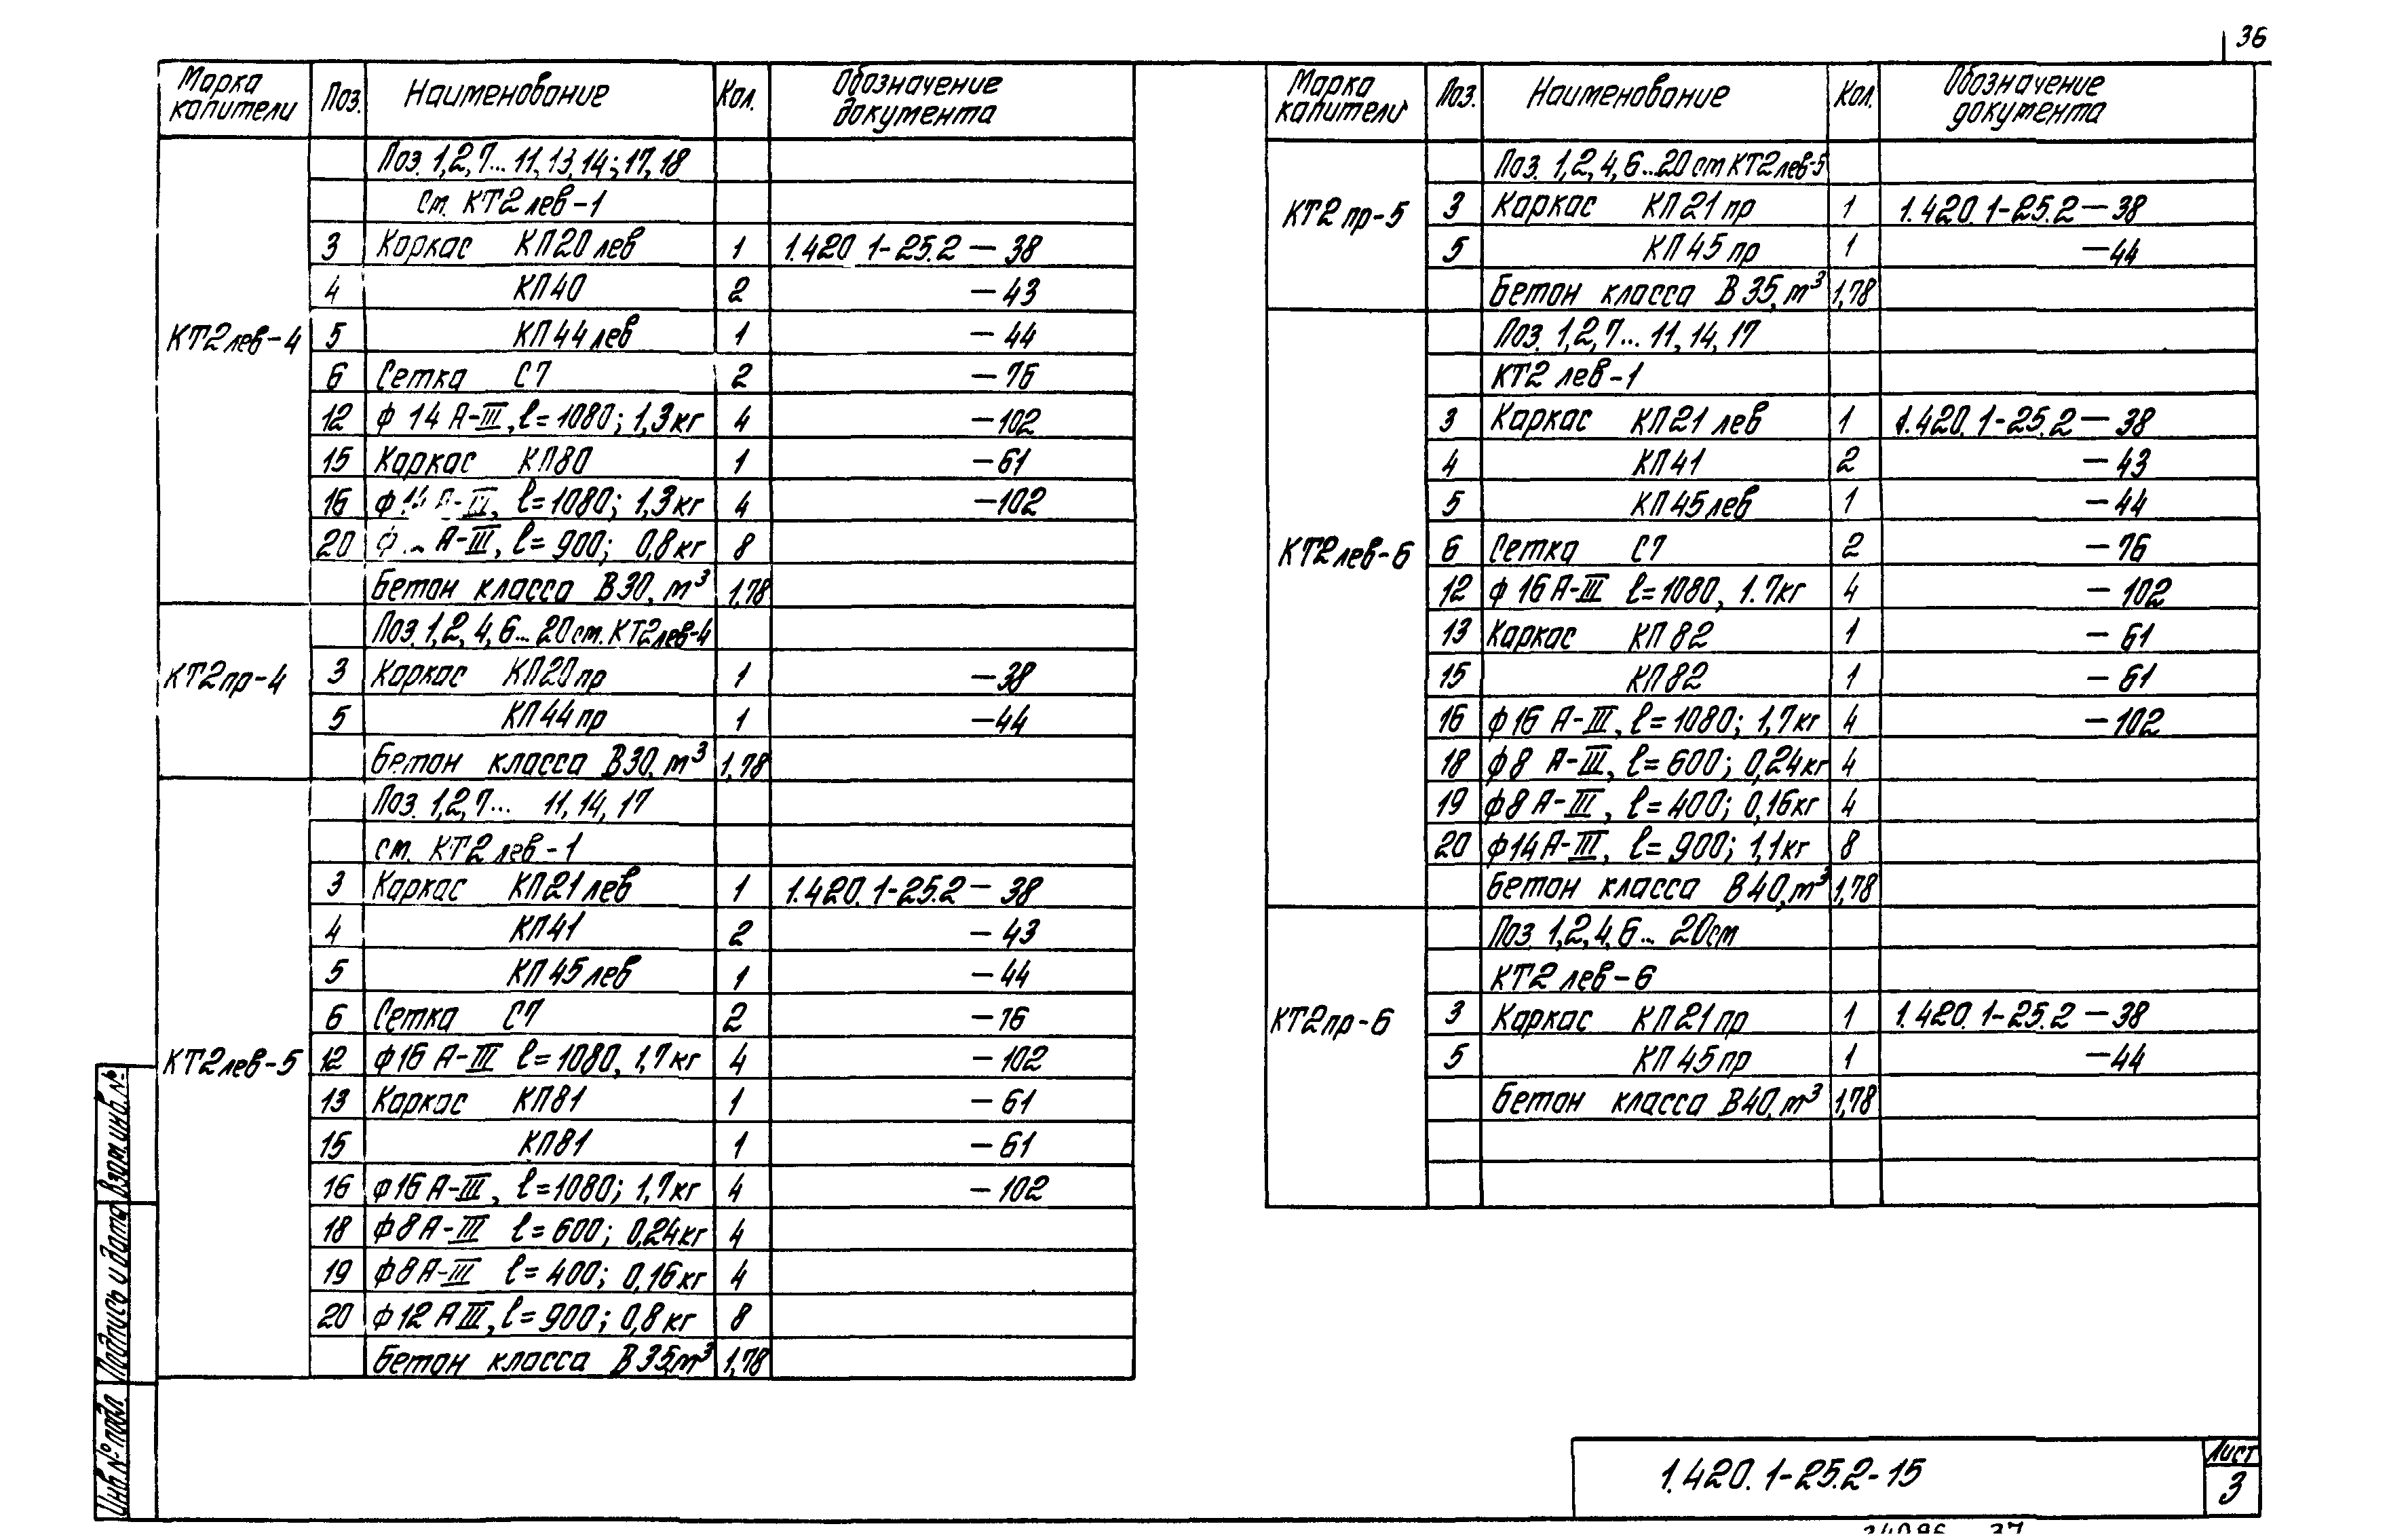 36
Марка капители Поз. Наименование Кол. Обозначение документа
Поз. 1,2,7... 11,13,14; 17,18
см. КТ2лев-1
3 Каркас КП20лев 1 1.420.1-25.2 — 38
4 КП40 2 — 43
КТ2лев-4 5 КП44лев 1 — 44
6 Сетка С7 2 — 76
12 ф 14 А-III, ℓ=1080; 1,3кг 4 — 102
15 Каркас КП80 1 — 61
16 ф 14 А-III, ℓ=1080; 1,3кг 4 — 102
20 ф А-III, ℓ=900; 0,8кг 8
Бетон класса В30, м³ 1,78
Поз. 1,2,4,6...20см. КТ2лев-4
КТ2пр-4 3 Каркас КП20пр 1 — 38
5 КП44пр 1 — 44
Бетон класса В30, м³ 1,78
Поз. 1,2,7... 11,14,17
см. КТ2лев-1
3 Каркас КП21лев 1 1.420.1-25.2 — 38
4 КП41 2 — 43
5 КП45лев 1 — 44
6 Сетка С7 2 — 76
КТ2лев-5 12 ф16 А-III ℓ=1080, 1,7кг 4 — 102
13 Каркас КП81 1 — 61
15 КП81 1 — 61
16 ф16 А-III, ℓ=1080; 1,7кг 4 — 102
18 ф8 А-III ℓ=600; 0,24кг 4
19 ф8 А-III ℓ=400; 0,16кг 4
20 ф12 АIII, ℓ=900; 0,8кг 8
Бетон класса В35, м³ 1,78
Марка капители Поз. Наименование Кол. Обозначение документа
Поз. 1,2,4,6...20см КТ2лев-5
КТ2пр-5 3 Каркас КП21пр 1 1.420.1-25.2 — 38
5 КП45пр 1 — 44
Бетон класса В35, м³ 1,78
Поз. 1,2,7... 11,14,17
КТ2лев-1
3 Каркас КП21лев 1 1.420.1-25.2 — 38
4 КП41 2 — 43
5 КП45лев 1 — 44
КТ2лев-6 6 Сетка С7 2 — 76
12 ф16 А-III ℓ=1080, 1.7кг 4 — 102
13 Каркас КП82 1 — 61
15 КП82 1 — 61
16 ф16 А-III, ℓ=1080; 1,7кг 4 — 102
18 ф8 А-III, ℓ=600; 0,24кг 4
19 ф8 А-III, ℓ=400; 0,16кг 4
20 ф14 А-III, ℓ=900; 1,1кг 8
Бетон класса В40, м³ 1,78
Поз. 1,2,4,6... 20см
КТ2лев-6
КТ2пр-6 3 Каркас КП21пр 1 1.420.1-25.2 — 38
5 КП45пр 1 — 44
Бетон класса В40, м³ 1,78
Взам.инв.№
Подпись и дата
Инв.№подл.
1.420.1-25.2-15
Лист
3
24096 37